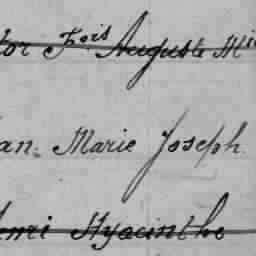 tor Fois Auguste Mi
an Marie Joseph
enri Hyacinthe